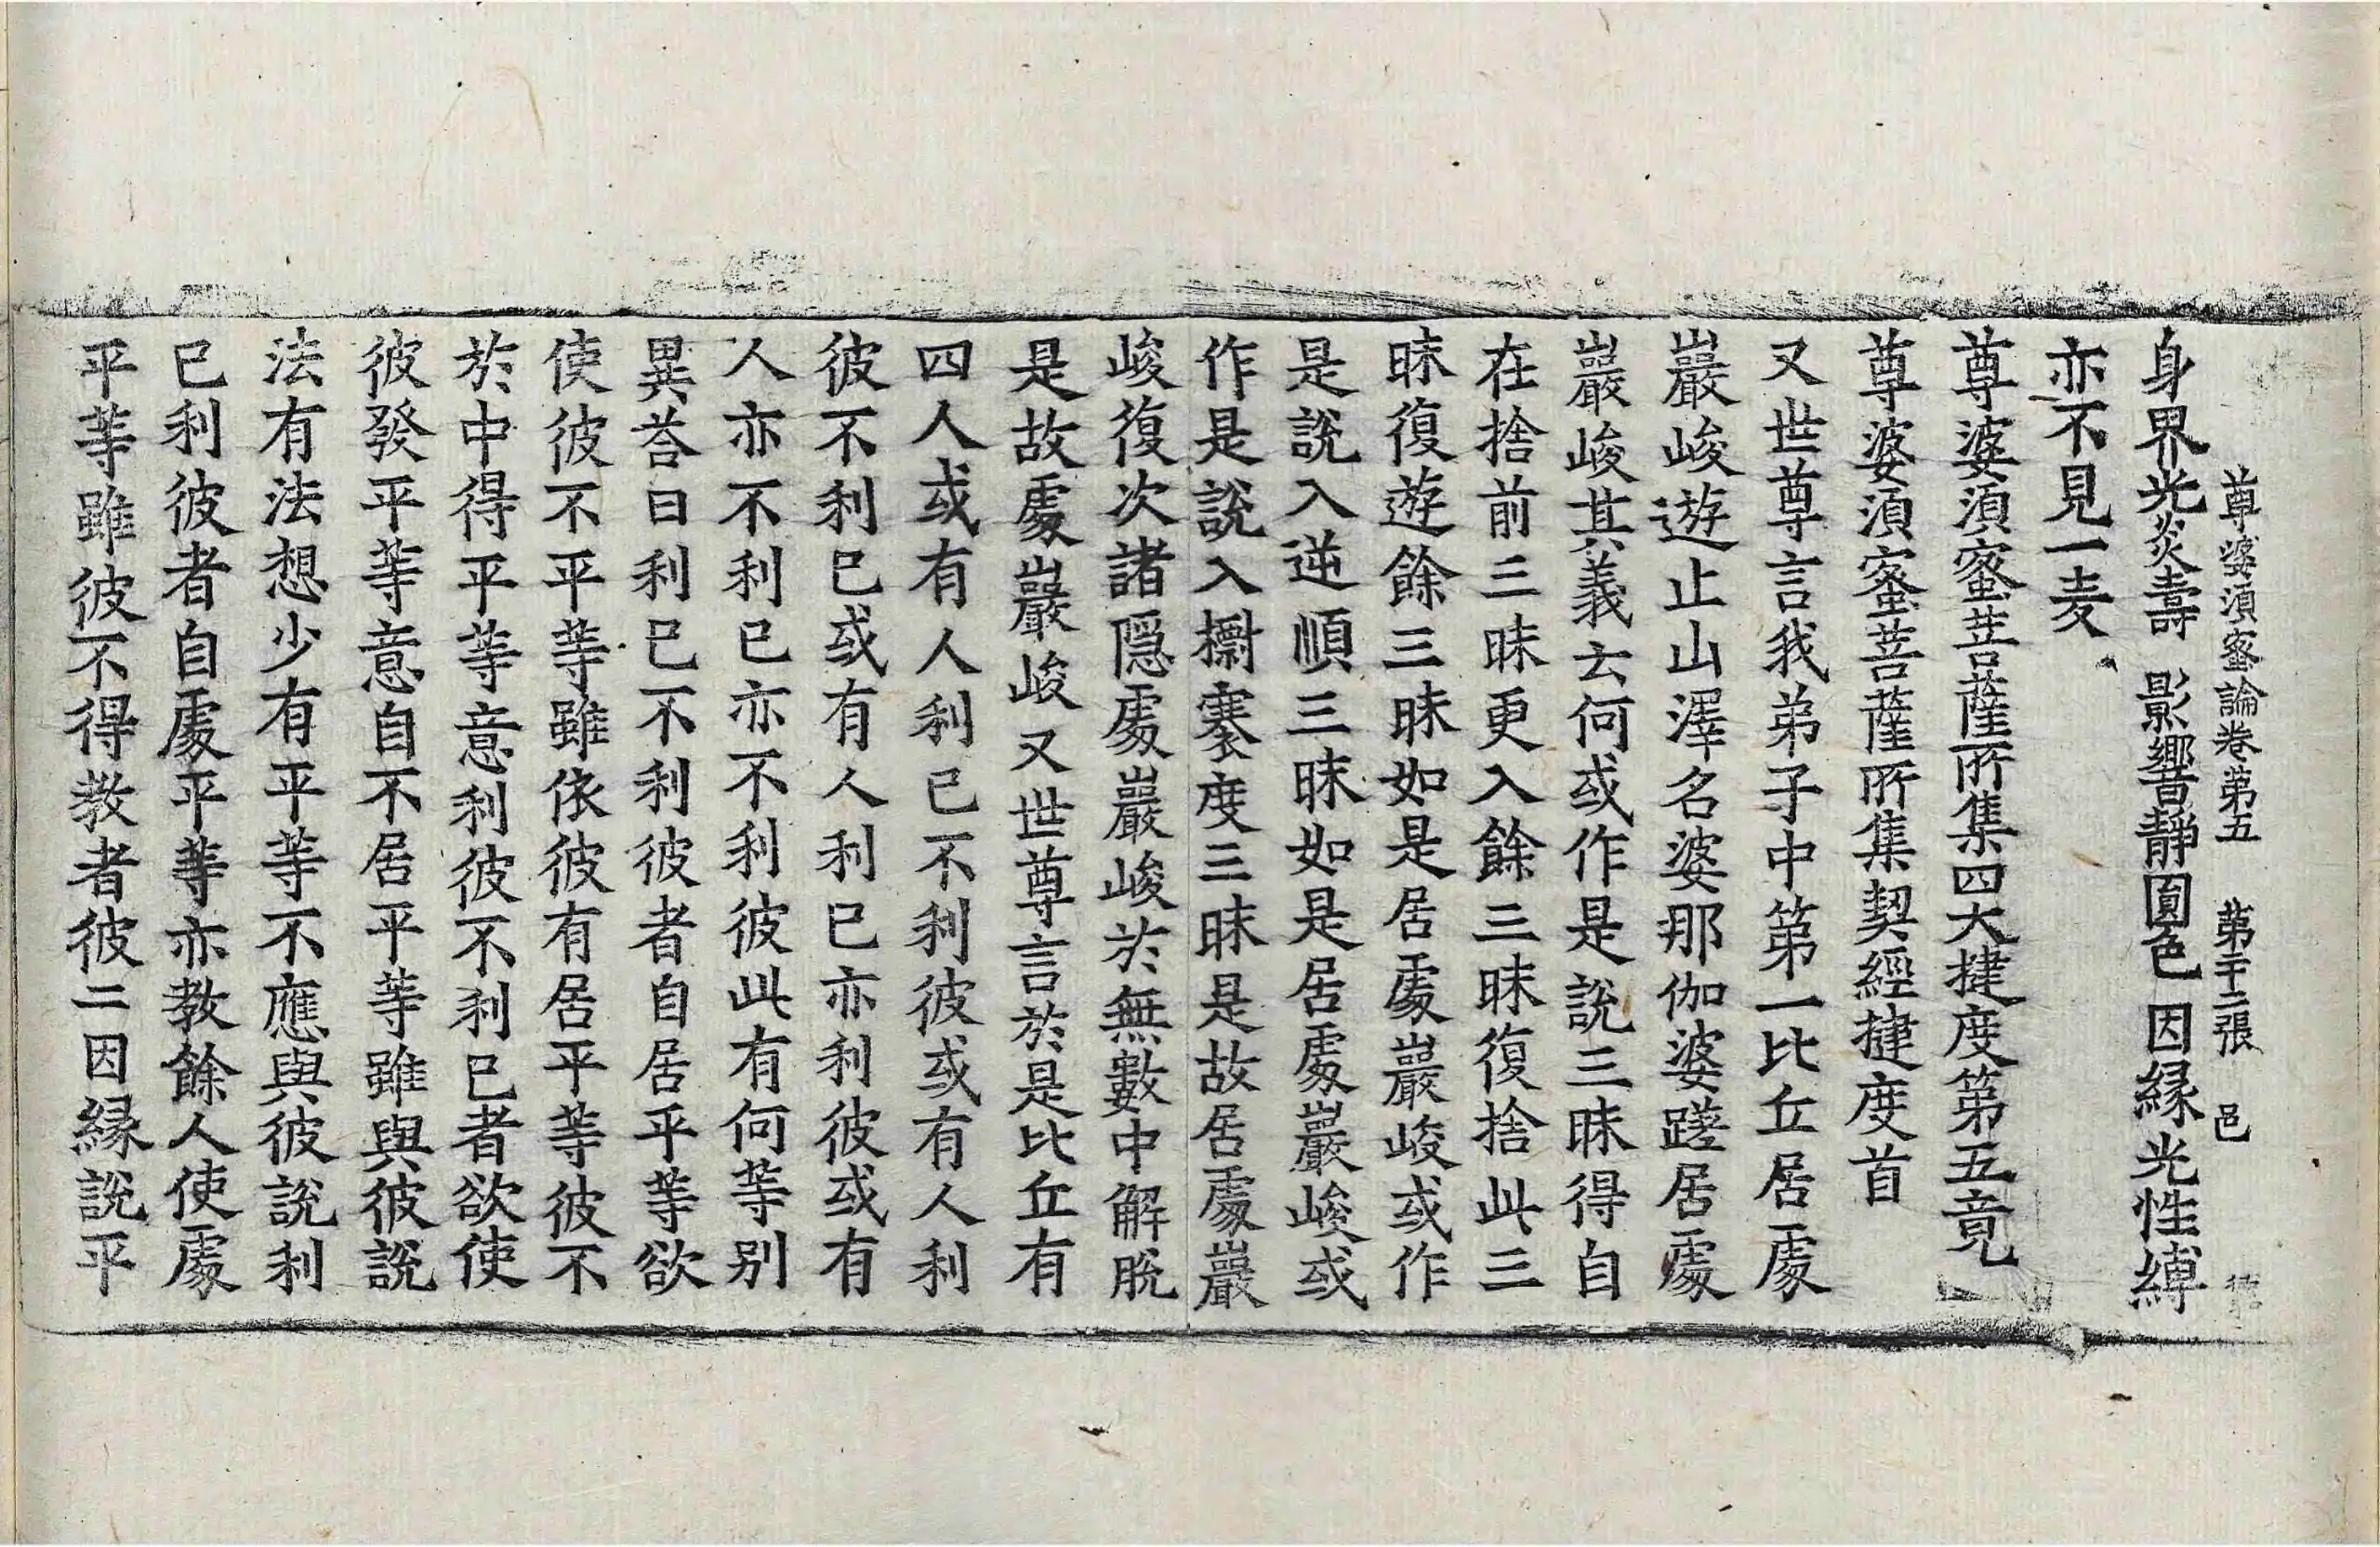 尊婆湏蜜論卷第五　第二十二張　邑
身界光炎壽　影響靜圓色　因緣光性縛
亦不見一麦
尊婆湏蜜菩薩所集四大揵度第五竟
尊婆湏蜜菩薩所集契經揵度首
又世尊言我弟子中第一比丘居處
巖峻遊止山澤名婆那伽婆蹉居處
巖峻其義云何或作是說三昧得自
在捨前三昧更入餘三昧復捨此三
昧復遊餘三昧如是居處巖峻或作
是說入逆順三昧如是居處巖峻或
作是說入櫥褰度三昧是故居處巖
峻復次諸隱處巖峻於無數中解脫
是故處巖峻又世尊言於是比丘有
四人或有人利己不利彼或有人利
彼不利己或有人利己亦利彼或有
人亦不利己亦不利彼此有何等別
異荅曰利己不利彼者自居平等欲
使彼不平等雖依彼有居平等彼不
於中得平等意利彼不利己者欲使
彼發平等意自不居平等雖與彼說
法有法想少有平等不應與彼說利
己利彼者自處平等亦教餘人使處
平等雖彼不得教者彼二因緣說平